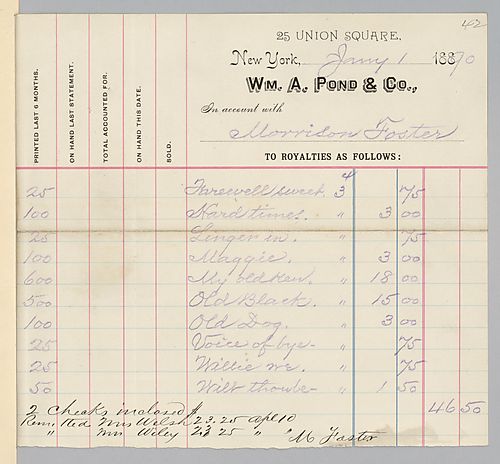 42
25 UNION SQUARE,
New York, Jany 1 1890
WM. A. POND & CO.,
In account with
Morrison Foster
PRINTED LAST 6 MONTHS.
ON HAND LAST STATEMENT.
TOTAL ACCOUNTED FOR.
ON HAND THIS DATE.
SOLD.
TO ROYALTIES AS FOLLOWS:
25 Farewell sweet 3 75
100 Hard times. " 3 00
25 Linger in. " 75
100 Maggie. " 3 00
600 My old Ken. " 18 00
500 Old Black. " 15 00
100 Old Dog. " 3 00
25 Voice of bye- " 75
25 Willie we. " 75
50 Wilt thou be- " 1 50
46 50
2 checks inclosed
Remitted Mrs Welsh 23.25 apl 10
" Mrs Wiley 23 25 " "
M Foster